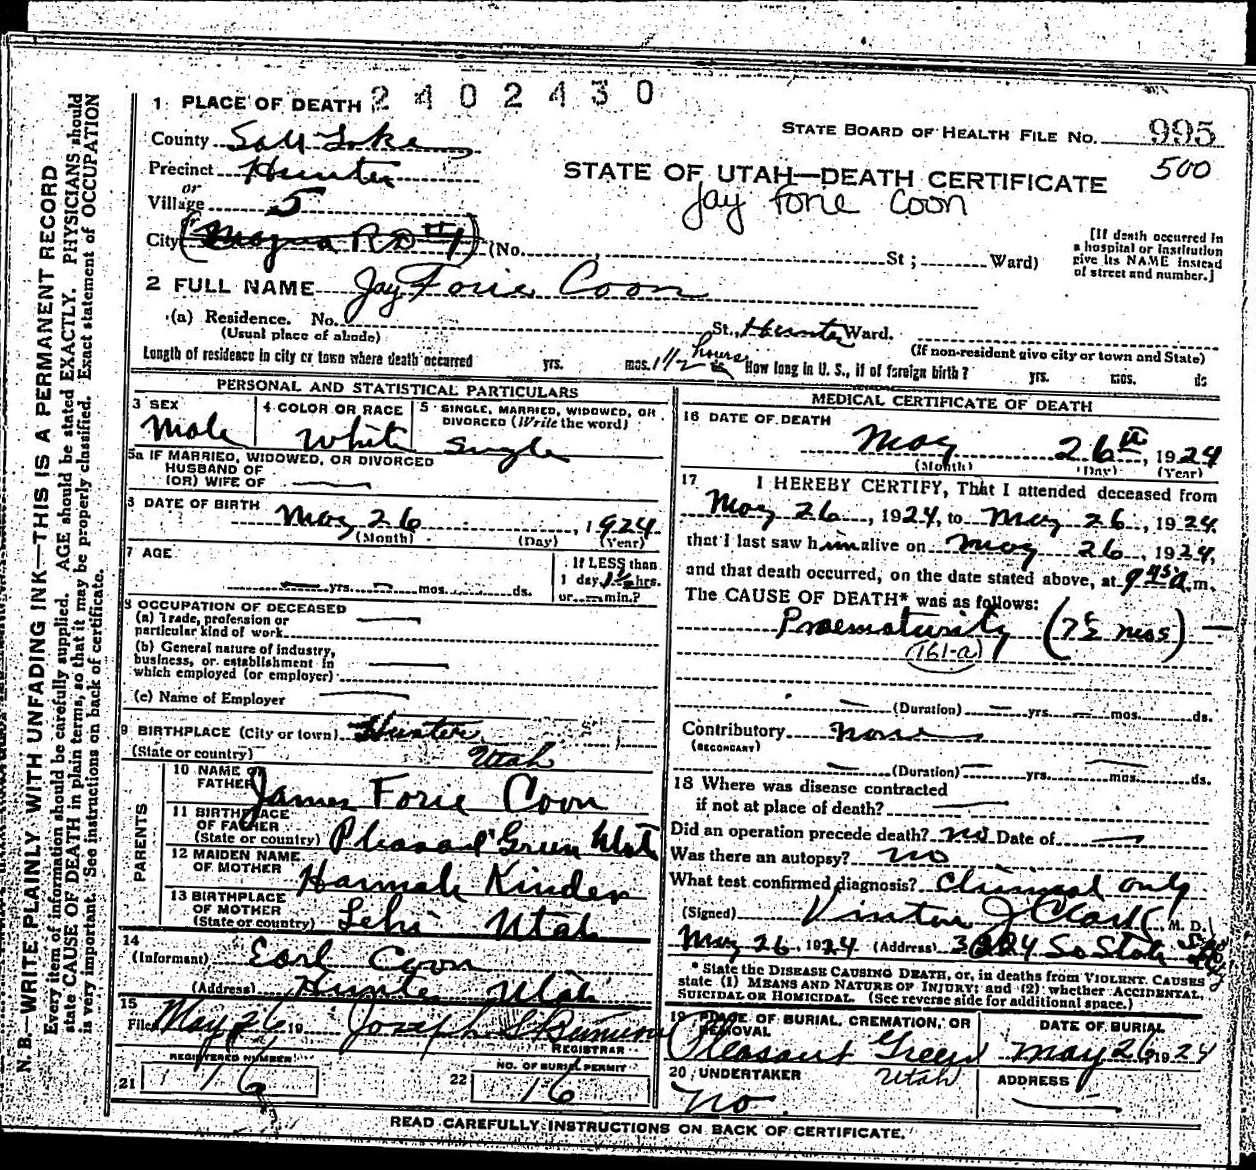 1 PLACE OF DEATH 2 4 0 2 4 3 0
STATE BOARD OF HEALTH FILE NO. 995
500
County Salt Lake
Precinct Hunter
or
Village 5
City (Magna R D #1) (No. St ; Ward)
STATE OF UTAH—DEATH CERTIFICATE
Jay Forie Coon
[If death occurred in
a hospital or institution
give its NAME instead
of street and number.]
2 FULL NAME Jay Forie Coon
(a) Residence. No. St., Hunter Ward.
(Usual place of abode) (If non-resident give city or town and State)
Length of residence in city or town where death occurred yrs. mos. 1 1/2 hours ds. How long in U. S., if of foreign birth? yrs. mos. ds
PERSONAL AND STATISTICAL PARTICULARS
3 SEX Male
4 COLOR OR RACE White
5 SINGLE, MARRIED, WIDOWED, OR
DIVORCED (Write the word)
Single
5a IF MARRIED, WIDOWED, OR DIVORCED
HUSBAND OF
(OR) WIFE OF
6 DATE OF BIRTH May 26, 1924
(Month) (Day) (Year)
7 AGE yrs. mos. ds.
If LESS than
1 day, 1½ hrs.
or min.?
8 OCCUPATION OF DECEASED
(a) Trade, profession or
particular kind of work
(b) General nature of industry,
business, or establishment in
which employed (or employer)
(c) Name of Employer
9 BIRTHPLACE (City or town) Hunter
(State or country) Utah
PARENTS
10 NAME OF
FATHER James Forie Coon
11 BIRTHPLACE
OF FATHER
(State or country) Pleasant Green Utah
12 MAIDEN NAME
OF MOTHER Hannah Kinder
13 BIRTHPLACE
OF MOTHER
(State or country) Lehi Utah
14
(Informant) Earl Coon
(Address) Hunter Utah
15
Filed May 26 19 Joseph S
REGISTRAR
REGISTERED NUMBER
21 16
NO. OF BURIAL PERMIT
22 16
MEDICAL CERTIFICATE OF DEATH
16 DATE OF DEATH
May 26th, 1924
(Month) (Day) (Year)
17 I HEREBY CERTIFY, That I attended deceased from
May 26, 1924, to May 26, 1924,
that I last saw him alive on May 26, 1924,
and that death occurred, on the date stated above, at 9 45 a. m.
The CAUSE OF DEATH* was as follows:
Praematurity (7½ mos)
(161-a)
(Duration) yrs. mos. ds.
Contributory none
(SECONDARY)
(Duration) yrs. mos. ds.
18 Where was disease contracted
if not at place of death?
Did an operation precede death? no Date of
Was there an autopsy? no
What test confirmed diagnosis? Clinical only
(Signed) Vinton J Clark M. D.
May 26, 1924 (Address) So State
* State the DISEASE CAUSING DEATH, or, in deaths from VIOLENT CAUSES
state (1) MEANS AND NATURE OF INJURY; and (2) whether ACCIDENTAL,
SUICIDAL OR HOMICIDAL. (See reverse side for additional space.)
19 PLACE OF BURIAL, CREMATION, OR
REMOVAL
Pleasant Green
Utah
DATE OF BURIAL
May 26 1924
20 UNDERTAKER
No
ADDRESS
READ CAREFULLY INSTRUCTIONS ON BACK OF CERTIFICATE.
N. B.—WRITE PLAINLY WITH UNFADING INK—THIS IS A PERMANENT RECORD
Every item of information should be carefully supplied. AGE should be stated EXACTLY. PHYSICIANS should
state CAUSE OF DEATH in plain terms, so that it may be properly classified. Exact statement of OCCUPATION
is very important. See instructions on back of certificate.